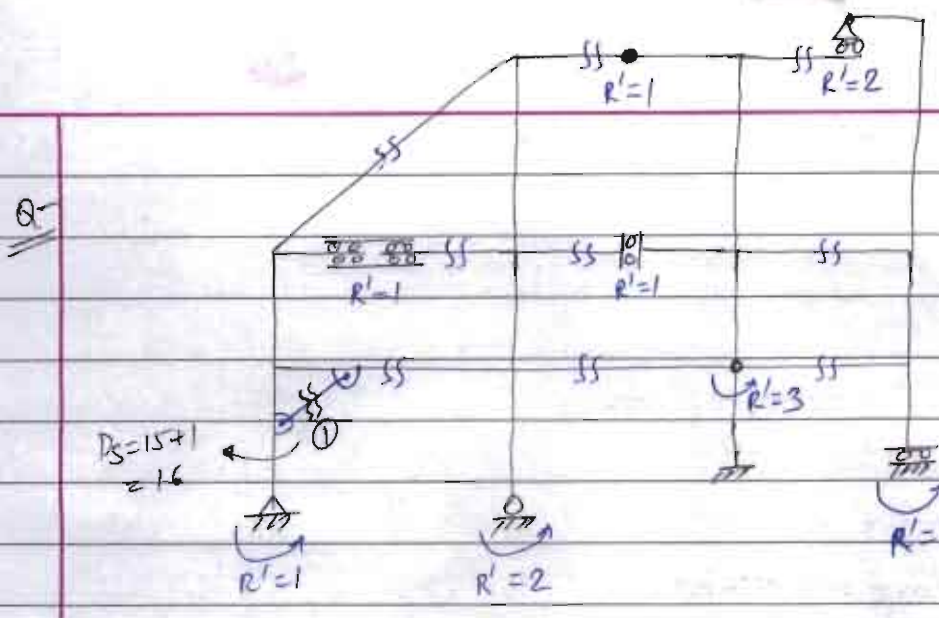 R'=1
R'=2
Q-
R'=1
R'=1
R'=3
①
Ds=15+1
=16
R'=1
R'=2
R'=